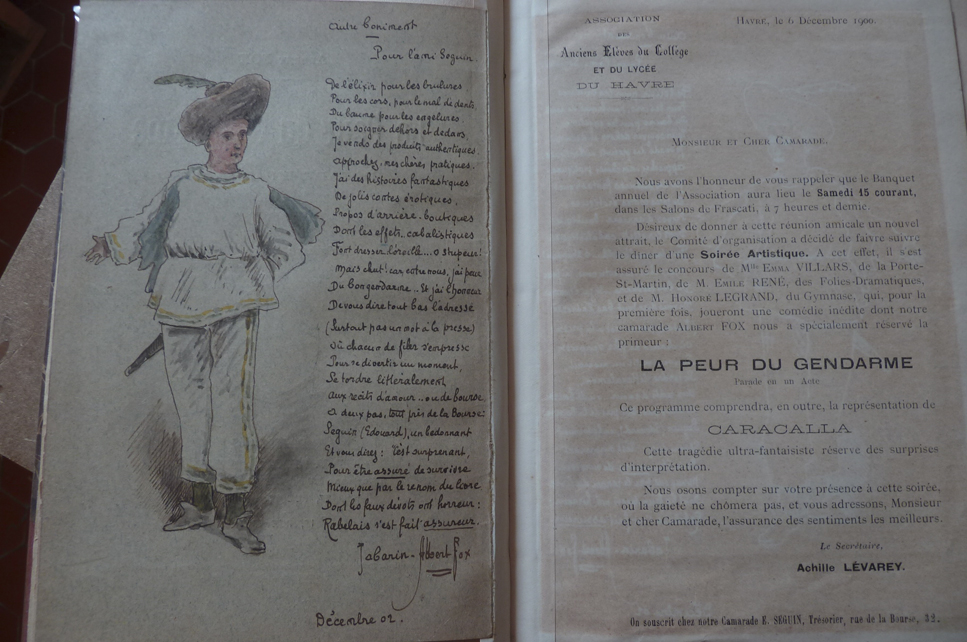 Autre Boniment
Pour l'ami Seguin.
De l'élixir pour les brulures,
Pour les cors, pour le mal de dents
Du baume pour les engelures.
Pour soigner dehors et dedans
Je vends des produits authentiques
Approchez, mes chères pratiques.
J'ai des histoires fantastiques
De jolis contes érotiques,
Propos d'arrière-boutiques
Dont les effets cabalistiques
Font dresser l'oreille... o stupeur!
Mais chut! car, entre nous, j'ai peur
Du bon gendarme.. Et j'ai l'honneur
De vous dire tout bas l'adresse
(Surtout pas un mot à la presse)
Où chacun de filer s'empresse
Pour se divertir un moment,
Se tordre littéralement
Aux récits d'amour.. ou de bourse.
A deux pas, tout près de la Bourse:
Seguin (Edouard), un bedonnant
Et vous direz: c'est surprenant,
Pour être assuré de survivre
Mieux que par le renom du livre
Dont les faux dévots ont horreur:
Rabelais s'est fait assureur.
Tabarin - Albert Fox
Décembre 02.
ASSOCIATION
DES
Anciens Elèves du Collège
ET DU LYCÉE
DU HAVRE
HAVRE, le 6 Décembre 1900.
MONSIEUR ET CHER CAMARADE,
Nous avons l'honneur de vous rappeler que le Banquet
annuel de l'Association aura lieu le Samedi 15 courant,
dans les Salons de Frascati, à 7 heures et demie.
Désireux de donner à cette réunion amicale un nouvel
attrait, le Comité d'organisation a décidé de faivre suivre
le dîner d'une Soirée Artistique. A cet effet, il s'est
assuré le concours de Mlle EMMA VILLARS, de la Porte-
St-Martin, de M. EMILE RENÉ, des Folies-Dramatiques,
et de M. HONORÉ LEGRAND, du Gymnase, qui, pour la
première fois, joueront une comédie inédite dont notre
camarade ALBERT FOX nous a spécialement réservé la
primeur :
LA PEUR DU GENDARME
Parade en un Acte
Ce programme comprendra, en outre, la représentation de
CARACALLA
Cette tragédie ultra-fantaisiste réserve des surprises
d'interprétation.
Nous osons compter sur votre présence à cette soirée,
où la gaieté ne chômera pas, et vous adressons, Monsieur
et cher Camarade, l'assurance des sentiments les meilleurs.
Le Secrétaire,
Achille LÉVAREY.
On souscrit chez notre Camarade E. SEGUIN, Trésorier, rue de la Bourse, 32.